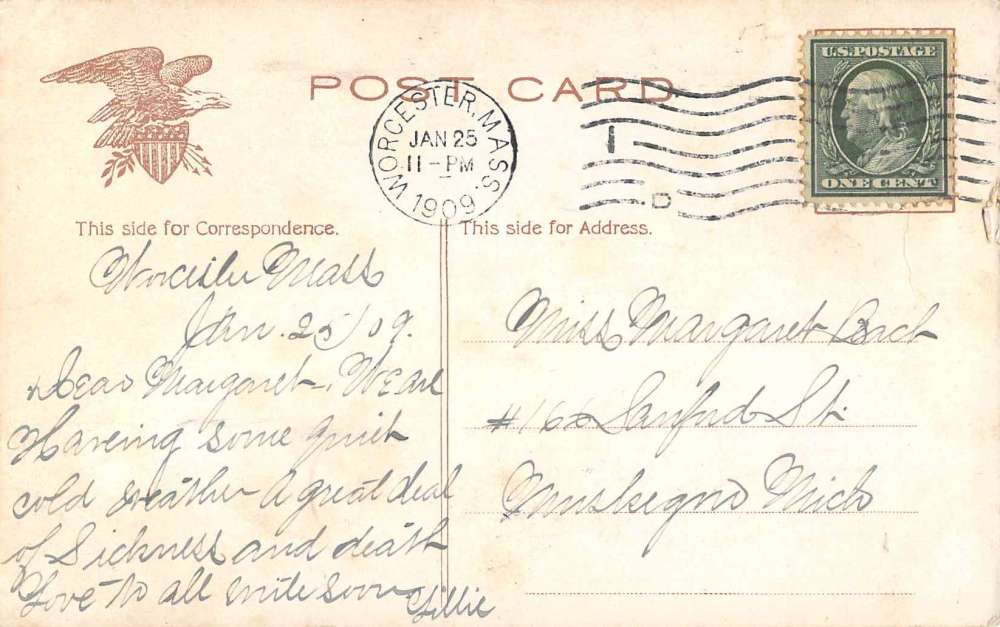 POST CARD
WORCESTER, MASS.
JAN 25
11-PM
1909
1
D
U.S. POSTAGE
ONE CENT
This side for Correspondence.
This side for Address.
Worcester Mass
Jan. 25/09.
Dear Margaret - We are
Haveing some quiet
cold weather A great deal
of Sickness and death
Love to all write soon
Lillie
Miss Margaret Bach
Sanford St.
Muskegon Mich